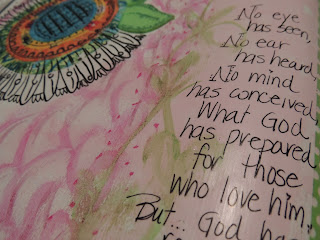 No eye
has been,
No ear
has heard,
No mind
has conceived
What God
has prepared
for those
who love him;
But... God has